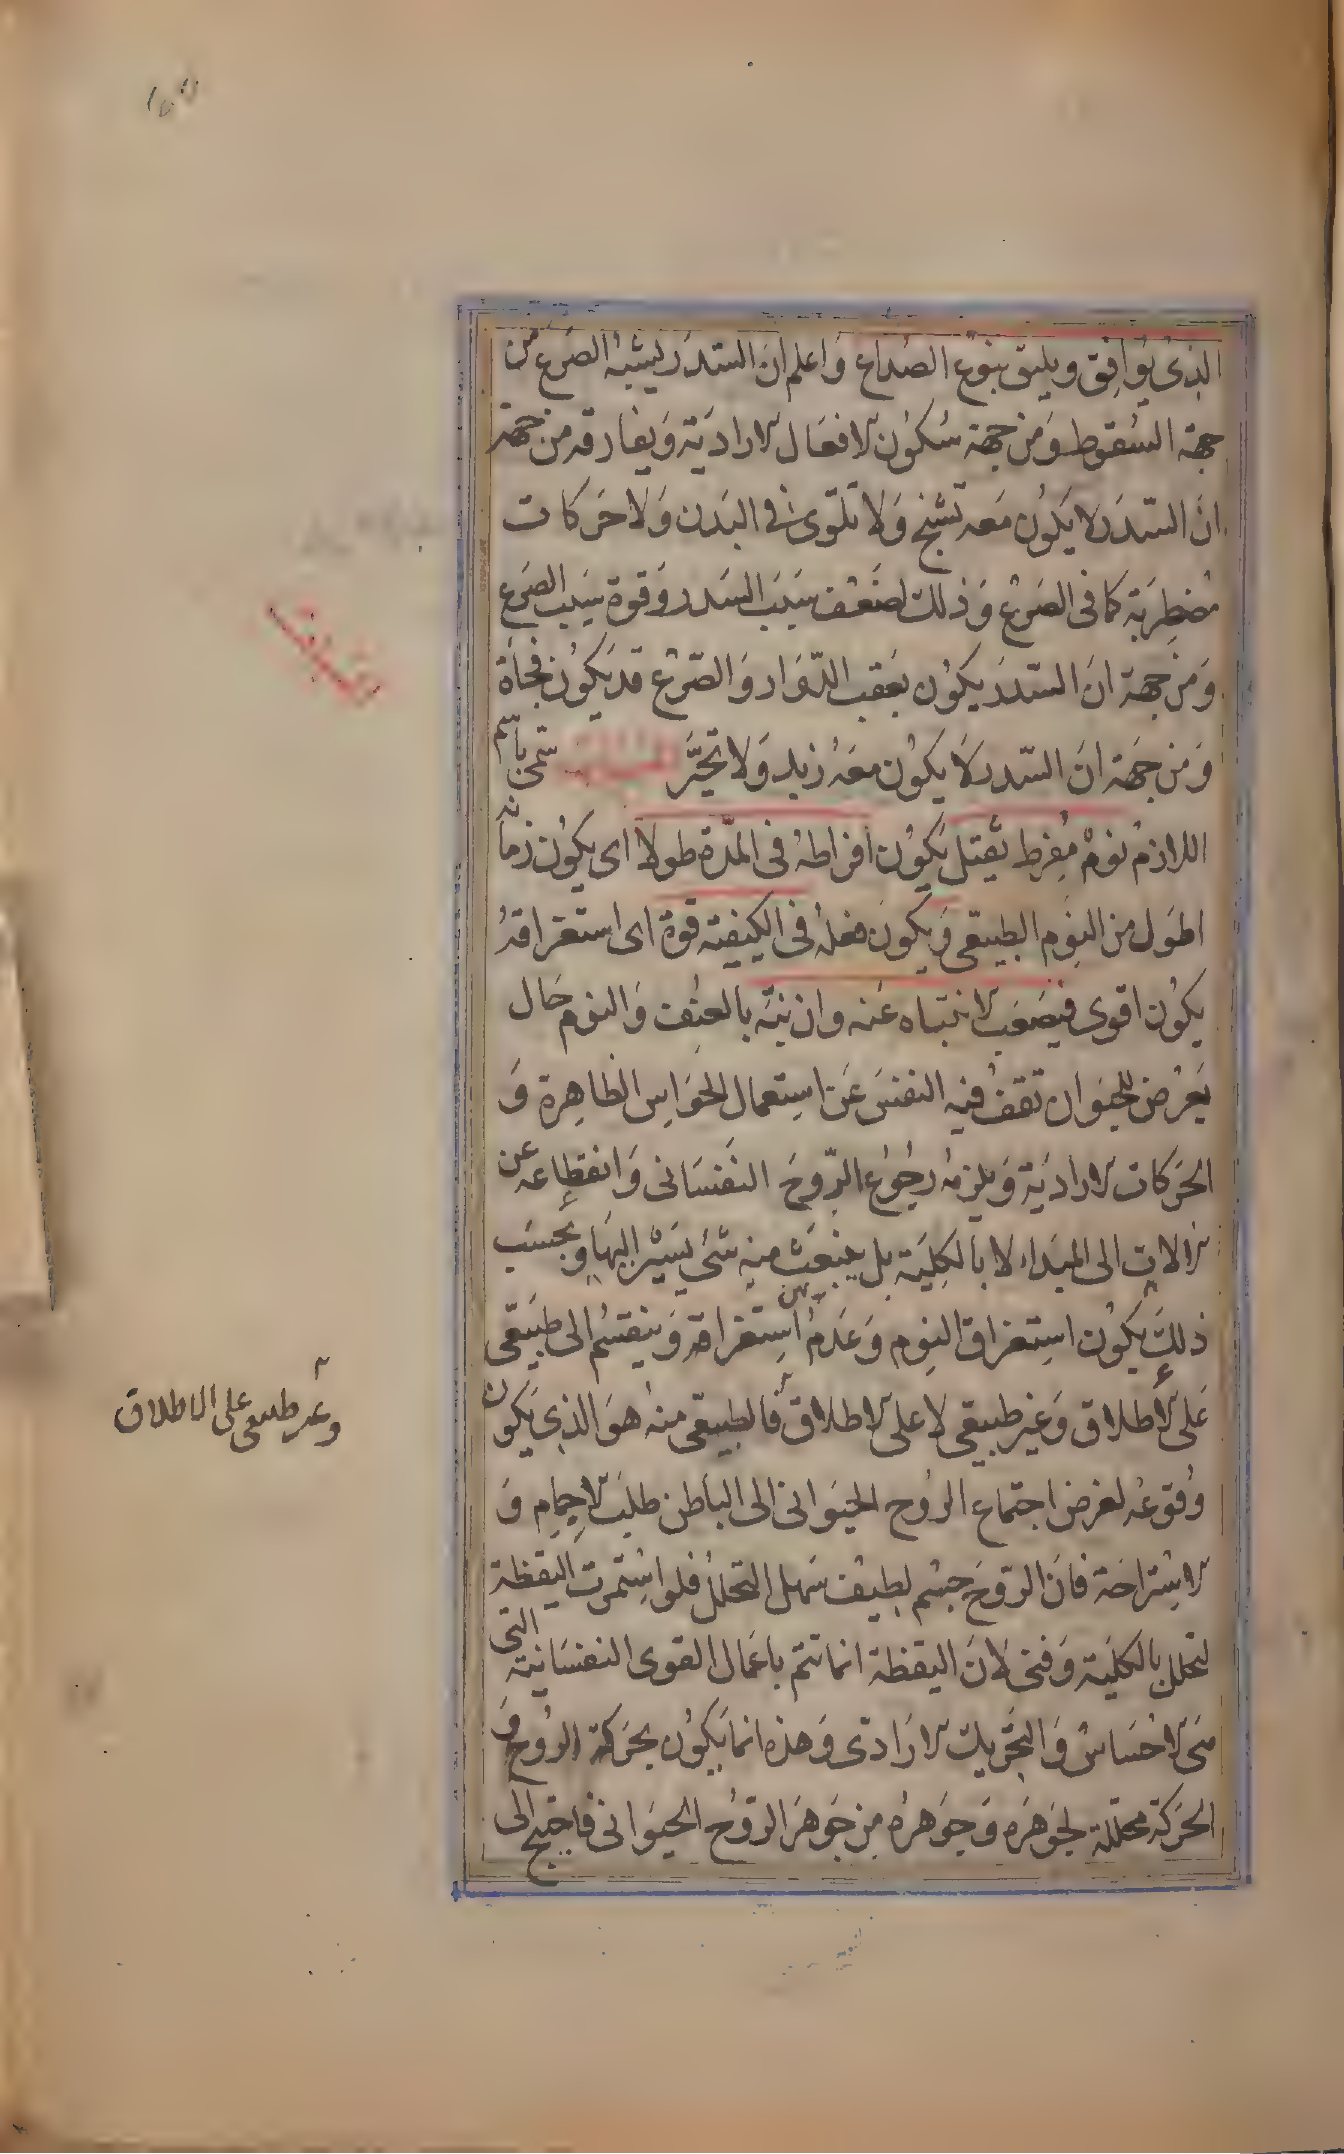 الذی یُوافِق ویلیق بنوع الصُداع وَاعلم انَّ السَدَر یشبهُ الصَرع من
جهة السُقوط وَمن جهة سُکون الافعَال الارادیّة وَیفارقه من جهة
انّ السَدَر لا یکوُن مَعه تشنج وَلا تلوّی فی البَدن وَلا حَرکات
مُضطربة کما فی الصَرع وَذلک لضَعف سَبَب السَدر وَقوة سَبَب الصَرع
وَمن جهة انَّ السَدَر یکوُن بعَقب الدّوَار وَالصَرع قد یَکوُن فجأة
وَمن جَهة انَّ السَدر لَا یکوُن معَهُ زبد وَلا تحیّر
سمّی باسم
اللازم نومٌ مُفرط ثقیل یَکوُن افراطهُ فی المدّة طولا ای یکوُن زمانه
اطوَل من النوم الطبیعی وَیکوُن فعلهُ فی الکیفیّة قوة ای استغراقهُ
یکوُن اقوی فیصَعب الانتباه عَنه وان نبّه بالعنف وَالنوم حَال
یَعرُض للحیَوان تقف فیه النفسَ عَن استعمال الحوَاس الظاهِرة وَ
الحَرکات الارادیَة وَیلزمه رجُوُع الرّوحَ النفسَانی وَانقطاعه عن
الالات الی المبَداء لا بالکلیَة بل ینبعَث منه شَئ یَسیْر الیهَا وبحسَب
ذلکَ یکوُن استغراق النوم وَعَدمُ استغراقه وَینقسُم الی طبیَعی
عَلَی الاطلاق وَغیر طبیعی لا علی الاطلاق فالطبیعی منهُ هوَ الذی یَکوُن
وُقوعُه لغرض اجتماع الروُح الحیَوانی الی الباطن طلبَ الاجمام وَ
الاستراحَة فانَّ الروّحَ جسْم لطیف سَهل التحلل فلو استمرت الیقظة
لتحلل بالکلیَة وَفنی لانَّ الیقظة انما تتم باعَمال القوی النفسَانیّة التی
هی الاحسَاسُ وَالتحَریک الارَادی وَهذه انما یَکوُن بحَرکة الروُح وَ
الحَرکة محللة لجَوهَره وَجوَهرهُ من جَوهَر الرّوُح الحیَوانی فاحتیج الی
وغیر طبیعی علی الاطلاق